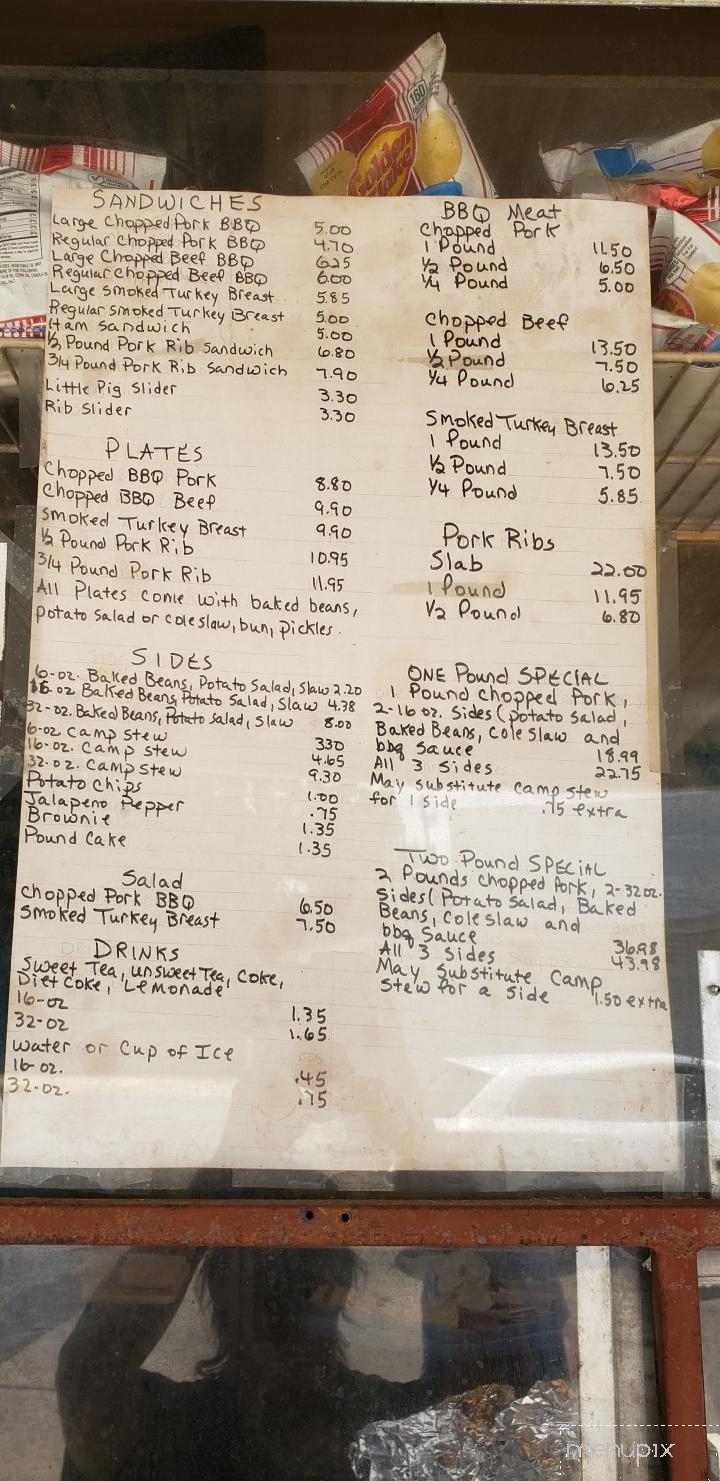 160
Golden Flake
SANDWICHES
Large Chopped Pork BBQ 5.00
Regular Chopped Pork BBQ 4.70
Large Chopped Beef BBQ 6.25
Regular Chopped Beef BBQ 6.00
Large Smoked Turkey Breast 5.85
Regular Smoked Turkey Breast 5.00
Ham Sandwich 5.00
1/2 Pound Pork Rib Sandwich 6.80
3/4 Pound Pork Rib Sandwich 7.90
Little Pig Slider 3.30
Rib Slider 3.30
PLATES
Chopped BBQ Pork 8.80
Chopped BBQ Beef 9.90
Smoked Turkey Breast 9.90
1/2 Pound Pork Rib 10.95
3/4 Pound Pork Rib 11.95
All Plates come with baked beans,
potato salad or coleslaw, bun, pickles.
SIDES
6-oz. Baked Beans, Potato Salad, Slaw 2.20
16-oz Baked Beans, Potato Salad, Slaw 4.38
32-oz. Baked Beans, Potato Salad, Slaw 8.00
6-oz Camp Stew 330
16-oz. Camp Stew 4.65
32-oz. Camp Stew 9.30
Potato Chips 1.00
Jalapeno Pepper .75
Brownie 1.35
Pound Cake 1.35
Salad
Chopped Pork BBQ 6.50
Smoked Turkey Breast 7.50
DRINKS
Sweet Tea, unsweet Tea, Coke,
Diet Coke, Lemonade
16-oz 1.35
32-oz 1.65
Water or Cup of Ice
16-oz. .45
32-oz. .75
BBQ Meat
Chopped Pork
1 Pound 11.50
1/2 Pound 6.50
1/4 Pound 5.00
Chopped Beef
1 Pound 13.50
1/2 Pound 7.50
1/4 Pound 6.25
Smoked Turkey Breast
1 Pound 13.50
1/2 Pound 7.50
1/4 Pound 5.85
Pork Ribs
Slab 22.00
1 Pound 11.95
1/2 Pound 6.80
ONE Pound SPECIAL
1 Pound Chopped Pork,
2-16 oz. Sides (potato salad,
Baked Beans, Cole Slaw and
bbq Sauce 18.99
All 3 Sides 22.75
May substitute camp stew
for 1 side .75 extra
TWO Pound SPECIAL
2 Pounds Chopped Pork, 2-32oz.
Sides (Potato Salad, Baked
Beans, Cole Slaw and
bbq Sauce 36.98
All 3 Sides 43.98
May Substitute Camp
Stew for a Side 1.50 extra
menupix